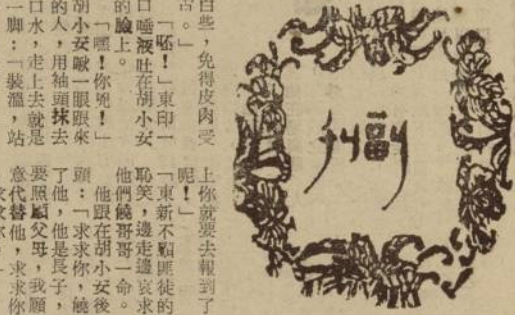 副刊
白些，免得皮肉受
苦。」
「呸！」東印一
口唾液吐在胡小安
的臉上。
「嘿！你兇！」
胡小安瞅一眼跟來
的人，用袖頭抹去
口水，走上去就是
一脚：「裝溫，站
上你就要去報到了
呢！」
「東新不顧匪徒的
恥笑，邊走邊哀求
他們饒哥哥一命。
他跟在胡小安後
頭：「求求你，饒
了他，他是長子，
要照顧父母，我願
意代替他，求求你